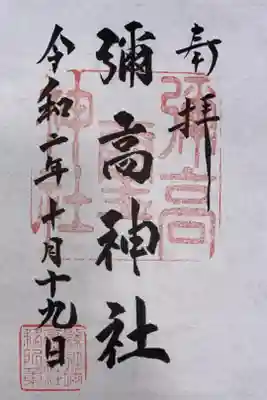 奉拝
彌高神社
令和二年十月十九日
彌高
神社